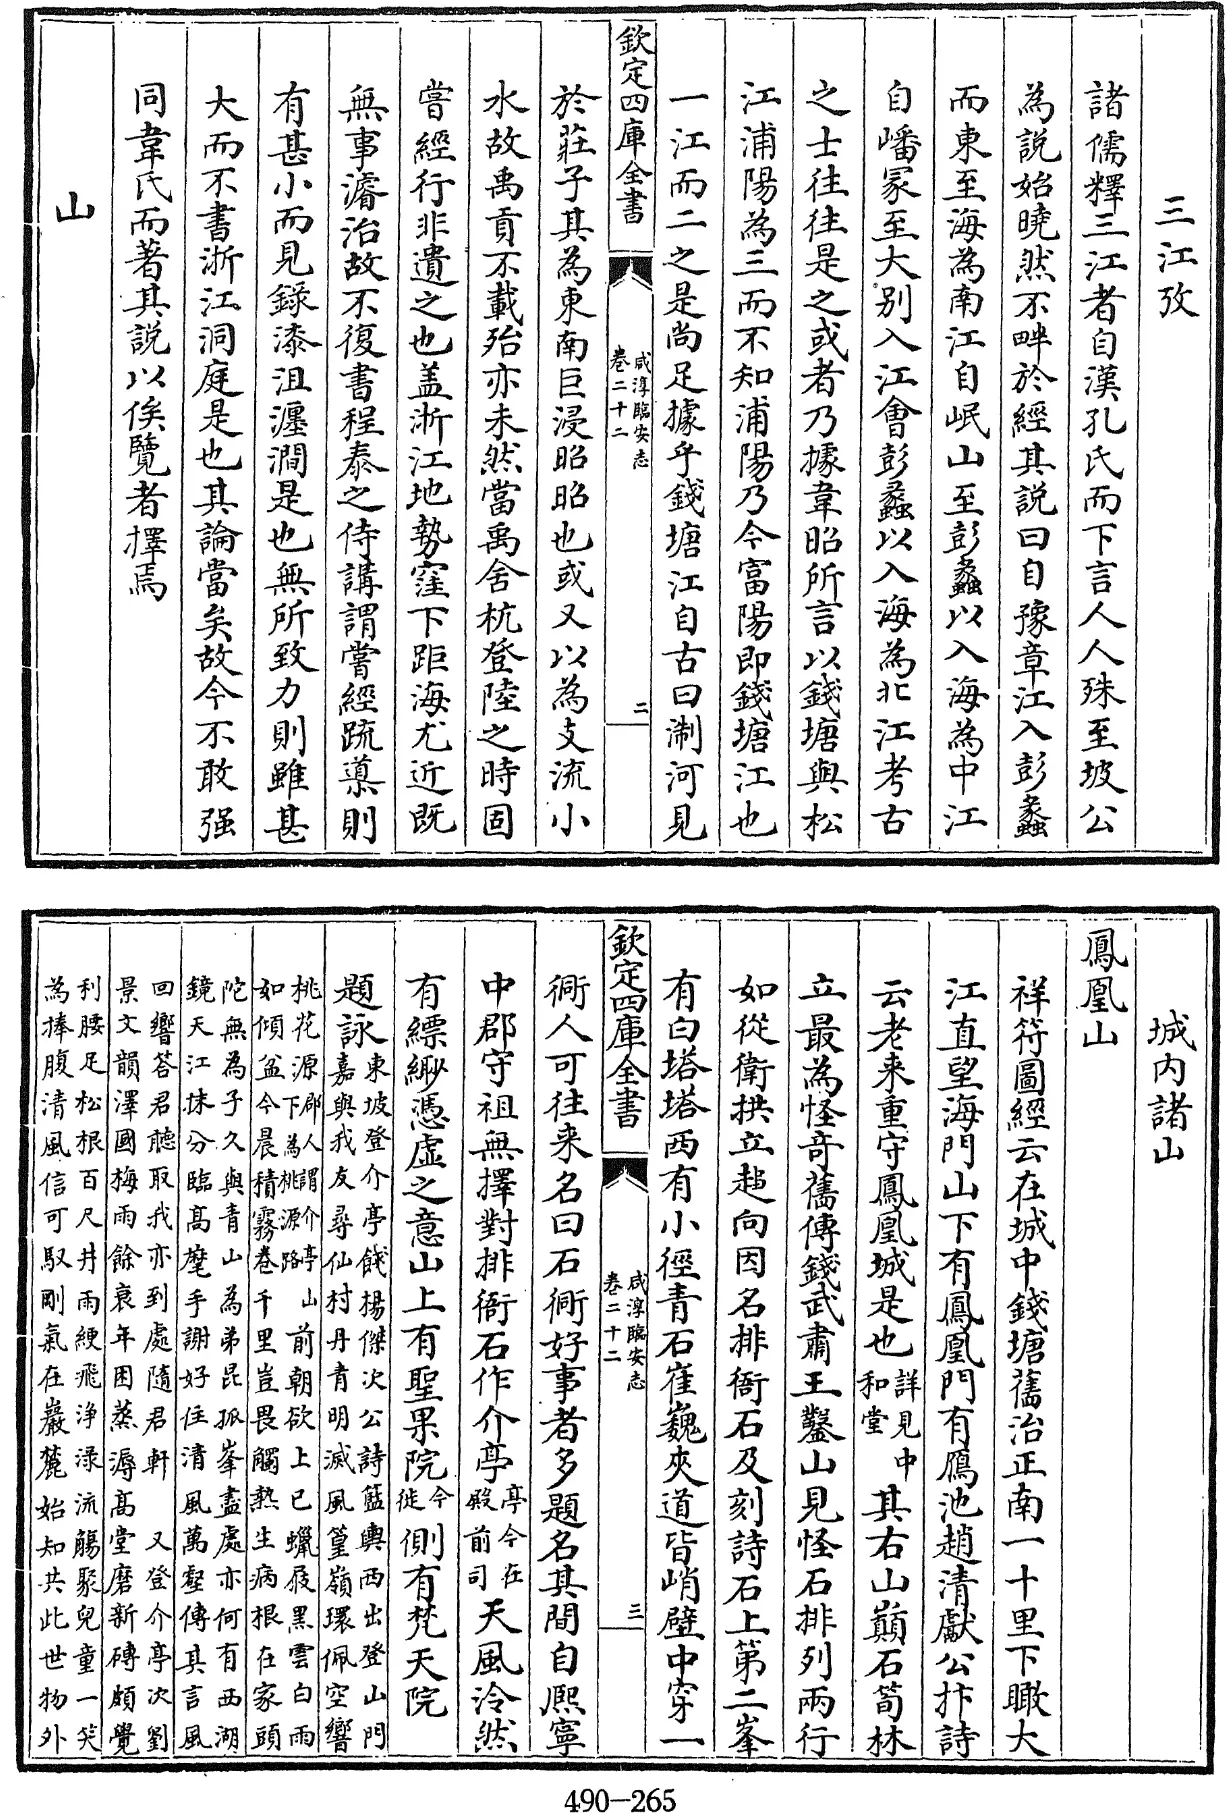 三江攷
諸儒釋三江者自漢孔氏而下言人人殊至坡公
為說始曉然不畔於經其說曰自豫章江入彭蠡
而東至海為南江自岷山至彭蠡以入海為中江
自嶓冢至大別入江會彭蠡以入海為北江考古
之士往往是之或者乃據韋昭所言以錢塘與松
江浦陽為三而不知浦陽乃今富陽即錢塘江也
一江而二之是尚足據乎錢塘江自古曰淛河見
欽定四庫全書
咸淳臨安志
卷二十二
二
於莊子其為東南巨浸昭昭也或又以為支流小
水故禹貢不載殆亦未然當禹舍杭登陸之時固
嘗經行非遺之也盖浙江地勢窪下距海尤近既
無事濬治故不復書程泰之侍講謂嘗經疏導則
有甚小而見錄漆沮瀍澗是也無所致力則雖甚
大而不書浙江洞庭是也其論當矣故今不敢强
同韋氏而著其說以俟覽者擇焉
山
城内諸山
鳳凰山
祥符圖經云在城中錢塘舊治正南一十里下瞰大
江直望海門山下有鳳凰門有鴈池趙清獻公抃詩
云老來重守鳳凰城是也詳見中和堂其右山巔石筍林
立最為怪奇舊傳錢武肅王鑿山見怪石排列兩行
如從衛拱立趨向因名排衙石及刻詩石上第二峯
有白塔塔西有小徑青石崔巍夾道皆峭壁中穿一
欽定四庫全書
咸淳臨安志
卷二十二
三
衕人可往來名曰石衕好事者多題名其間自熙寧
中郡守祖無擇對排衙石作介亭亭今在殿前司天風泠然
有縹緲憑虛之意山上有聖果院今徙側有梵天院
題詠東坡登介亭餞楊傑次公詩籃輿西出登山門
嘉與我友尋仙村丹青明滅風篁嶺環佩空響
桃花源郡人謂介亭山下為桃源路前朝欲上已蠟屐黑雲白雨
如傾盆今晨積霧卷千里豈畏觸熱生病根在家頭
陀無為子久與青山為弟昆孤峯盡處亦何有西湖
鏡天江抹分臨高麾手謝好住清風萬壑傳其言風
回響答君聽取我亦到處隨君軒 又登介亭次劉
景文韻澤國梅雨餘衰年困蒸溽高堂磨新磚頗覺
利腰足松根百尺井雨綆飛浄淥流觴聚兒童一笑
為捧腹清風信可馭剛氣在巖麓始知共此世物外
490-265